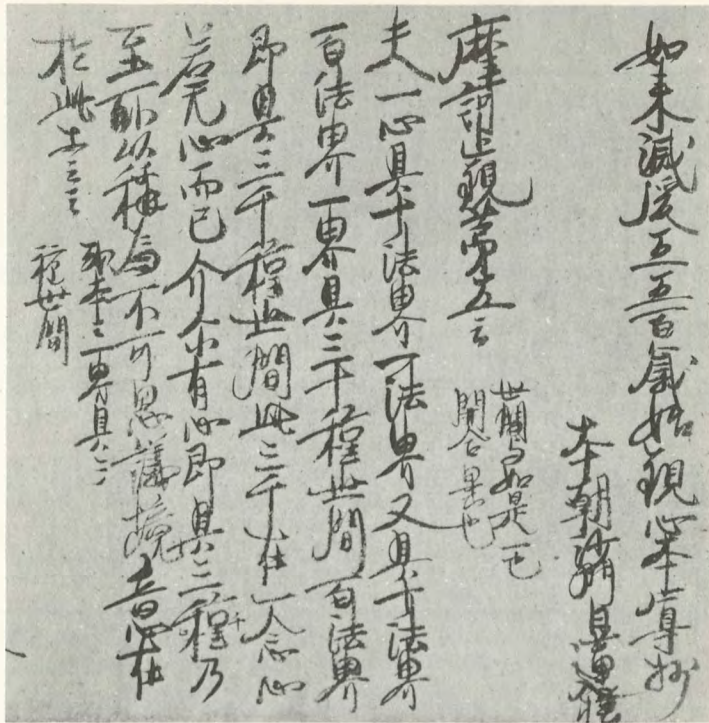 如来滅後五五百歳始観心本尊抄
本朝沙門日蓮撰
摩訶止観第五云
世間与如是一也
開合異也
夫一心具十法界一法界又具十法界
百法界一界具三十種世間百法界
即具三千種世間此三千在一念心
若无心而已介尓有心即具三千乃
至所以称為不可思議境意在
於此云云
或本云一界具三
種世間